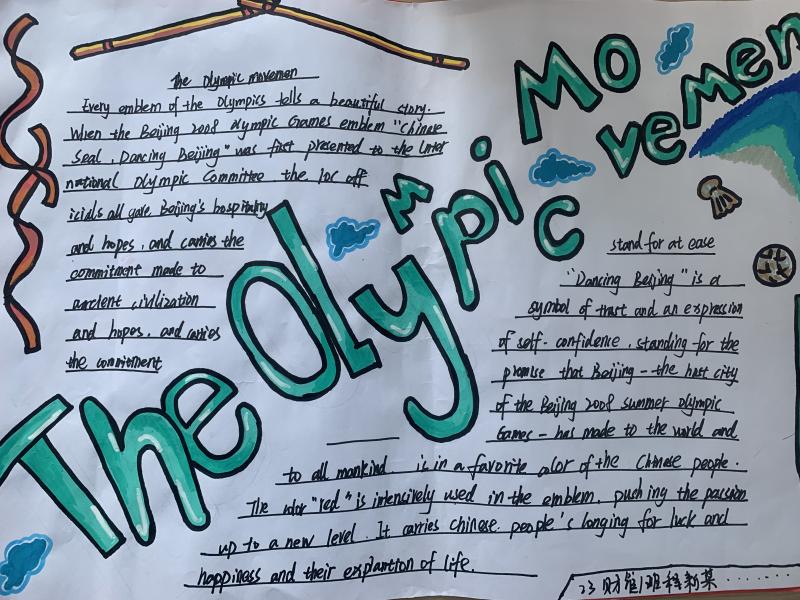 The Olympic Movement
the Olympic movemen
Every emblem of the Olympics tells a beautiful story.
When the Beijing 2008 Olympic Games emblem "Chinese
Seal, Dancing Beijing" was fast presented to the Inter
national Olympic Committee the loc off
icials all gave Beijing's hospitality
and hopes, and carries the
commitment made to
ancient civilization
and hopes, and carries
the commitment
stand for at ease
"Dancing Beijing" is a
symbol of trust and an expression
of self-confidence, standing for the
promise that Beijing - the host city
of the Beijing 2008 summer olympic
Games - has made to the world and
to all mankind. is in a favorite color of the Chinese people.
The color "red" is intensively used in the emblem, pushing the passion
up to a new level. It carries chinese people's longing for luck and
happiness and their explantion of life.
23财管1班